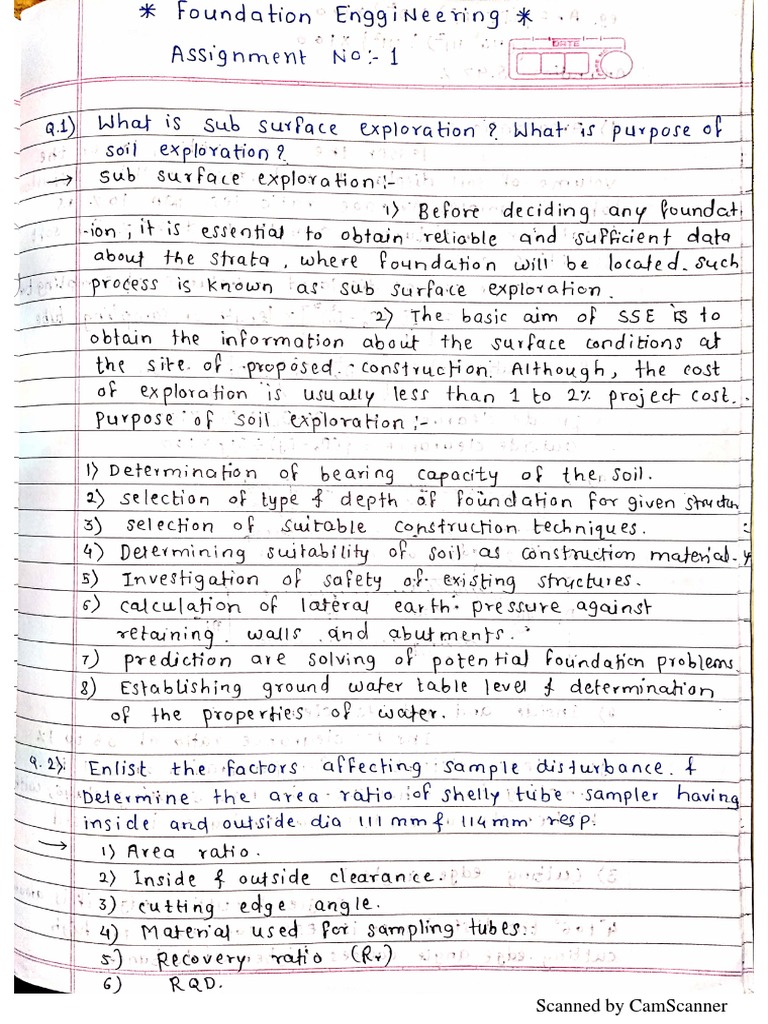 * Foundation Enggineering *
Assignment No:- 1
DATE
Q.1) What is sub surface exploration? What is purpose of
soil exploration?
→ sub surface exploration:-
1) Before deciding any foundat
-ion, it is essential to obtain reliable and sufficient data
about the strata, where foundation will be located. such
process is known as sub surface exploration.
2) The basic aim of SSE is to
obtain the information about the surface conditions at
the site of proposed construction. Although, the cost
of exploration is usually less than 1 to 2% project cost.
Purpose of soil exploration :-
1) Determination of bearing capacity of the soil.
2) selection of type & depth of foundation for given structur
3) selection of suitable construction techniques.
4) Determining suitability of soil as construction material.
5) Investigation of safety of existing structures.
6) calculation of lateral earth pressure against
retaining walls and abutments.
7) prediction are solving of potential foundation problems
8) Establishing ground water table level & determination
of the properties of water.
Q.2) Enlist the factors affecting sample disturbance. &
Determine the area ratio of shelly tube sampler having
inside and outside dia 111 mm & 114 mm resp.
→ 1) Area ratio.
2) Inside & outside clearance.
3) cutting edge angle.
4) Material used for sampling tubes.
5) Recovery ratio (Rr)
6) RQD.
Scanned by CamScanner